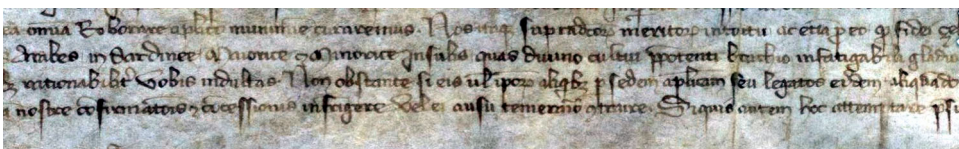 ea omnia Roborare aplico munimine curaremus. Nos itaque supradcor meritor intuitu ac etiam p eo qd fidei
Arabes in Sardinee Maiorice & Minorice Insulis quas divino cultui potenti brachio infatigabili gladio
rationabilit vobis indultas Non obstante si eis ul ipor aliqb p sedem aplicam seu legatos eidem aliquando
nostre cofirmatois & cocessionis infrigere vel ei ausu temerario otraire. Siquis autem hec attemptare psu